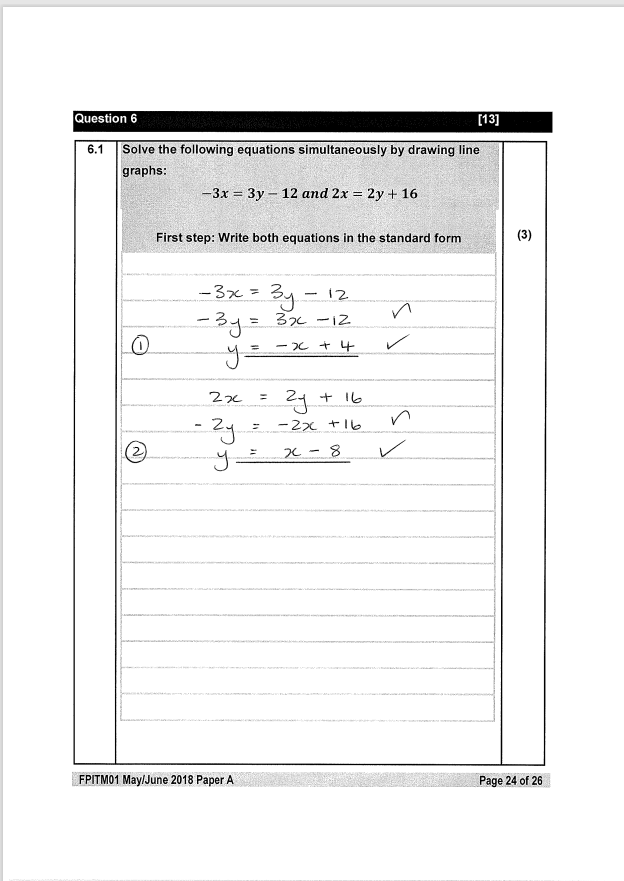 Question 6 [13]
6.1 Solve the following equations simultaneously by drawing line
graphs:
−3x = 3y − 12 and 2x = 2y + 16
First step: Write both equations in the standard form (3)
-3x = 3y - 12
-3y = 3x -12
① y = -x + 4 ✓
2x = 2y + 16
- 2y = -2x +16
② y = x - 8 ✓
FPITM01 May/June 2018 Paper A Page 24 of 26